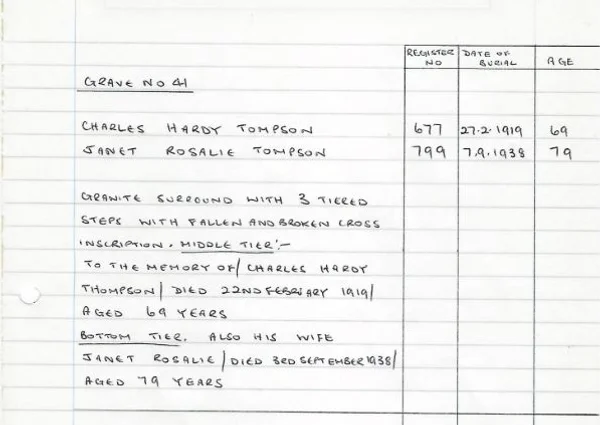 REGISTER NO DATE OF BURIAL AGE
GRAVE NO 41
CHARLES HARDY TOMPSON 677 27.2.1919 69
JANET ROSALIE TOMPSON 799 7.9.1938 79
GRANITE SURROUND WITH 3 TIERED
STEPS WITH FALLEN AND BROKEN CROSS
INSCRIPTION. MIDDLE TIER:-
TO THE MEMORY OF/ CHARLES HARDY
THOMPSON/ DIED 22ND FEBRIARY 1919/
AGED 69 YEARS
BOTTOM TIER. ALSO HIS WIFE
JANET ROSALIE / DIED 3RD SEPTEMBER 1938/
AGED 79 YEARS